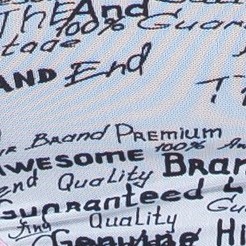 The And
100% Guara
tage
AND End
T
R BRAND PREMIUM
100%
AWESOME BRAN
end Quality
Guaranteed
ing Quality Gu
Genuine H